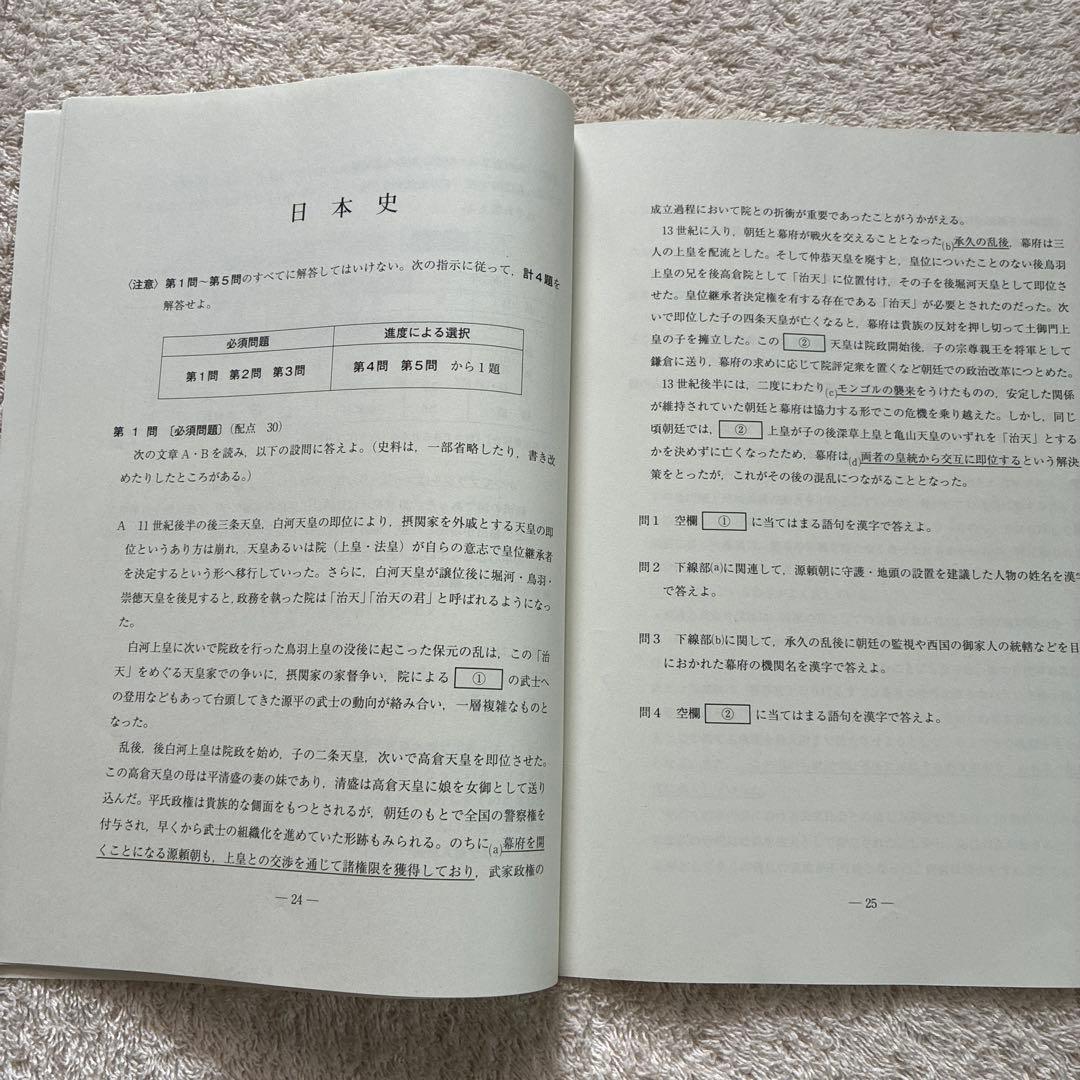 日本史
〈注意〉 第1問~第5問のすべてに解答してはいけない。次の指示に従って,計4題を
解答せよ。
必須問題 進度による選択
第1問 第2問 第3問 第4問 第5問 から1題
第1問 〔必須問題〕(配点 30)
次の文章A・Bを読み,以下の設問に答えよ。(史料は,一部省略したり,書き改
めたりしたところがある。)
A 11世紀後半の後三条天皇,白河天皇の即位により,摂関家を外戚とする天皇の即
位というあり方は崩れ,天皇あるいは院(上皇・法皇)が自らの意志で皇位継承者
を決定するという形へ移行していった。さらに,白河天皇が譲位後に堀河・鳥羽・
崇徳天皇を後見すると,政務を執った院は「治天」「治天の君」と呼ばれるようになっ
た。
白河上皇に次いで院政を行った鳥羽上皇の没後に起こった保元の乱は,この「治
天」をめぐる天皇家での争いに,摂関家の家督争い,院による ① の武士へ
の登用などもあって台頭してきた源平の武士の動向が絡み合い,一層複雑なものと
なった。
乱後,後白河上皇は院政を始め,子の二条天皇,次いで高倉天皇を即位させた。
この高倉天皇の母は平清盛の妻の妹であり,清盛は高倉天皇に娘を女御として送り
込んだ。平氏政権は貴族的な側面をもつとされるが,朝廷のもとで全国の警察権を
付与され,早くから武士の組織化を進めていた形跡もみられる。のちに(a)幕府を開
くことになる源頼朝も,上皇との交渉を通じて諸権限を獲得しており,武家政権の
― 24 ―
成立過程において院との折衝が重要であったことがうかがえる。
13世紀に入り,朝廷と幕府が戦火を交えることとなった(b)承久の乱後,幕府は三
人の上皇を配流とした。そして仲恭天皇を廃すと,皇位についたことのない後鳥羽
上皇の兄を後高倉院として「治天」に位置付け,その子を後堀河天皇として即位さ
せた。皇位継承者決定権を有する存在である「治天」が必要とされたのだった。次
いで即位した子の四条天皇が亡くなると,幕府は貴族の反対を押し切って土御門上
皇の子を擁立した。この ② 天皇は院政開始後,子の宗尊親王を将軍として
鎌倉に送り,幕府の求めに応じて院評定衆を置くなど朝廷での政治改革につとめた。
13世紀後半には,二度にわたり(c)モンゴルの襲来をうけたものの,安定した関係
が維持されていた朝廷と幕府は協力する形でこの危機を乗り越えた。しかし,同じ
頃朝廷では, ② 上皇が子の後深草上皇と亀山天皇のいずれを「治天」とする
かを決めずに亡くなったため,幕府は(d)両者の皇統から交互に即位するという解決
策をとったが,これがその後の混乱につながることとなった。
問1 空欄 ① に当てはまる語句を漢字で答えよ。
問2 下線部(a)に関連して,源頼朝に守護・地頭の設置を建議した人物の姓名を漢字
で答えよ。
問3 下線部(b)に関して,承久の乱後に朝廷の監視や西国の御家人の統轄などを目
におかれた幕府の機関名を漢字で答えよ。
問4 空欄 ② に当てはまる語句を漢字で答えよ。
― 25 ―